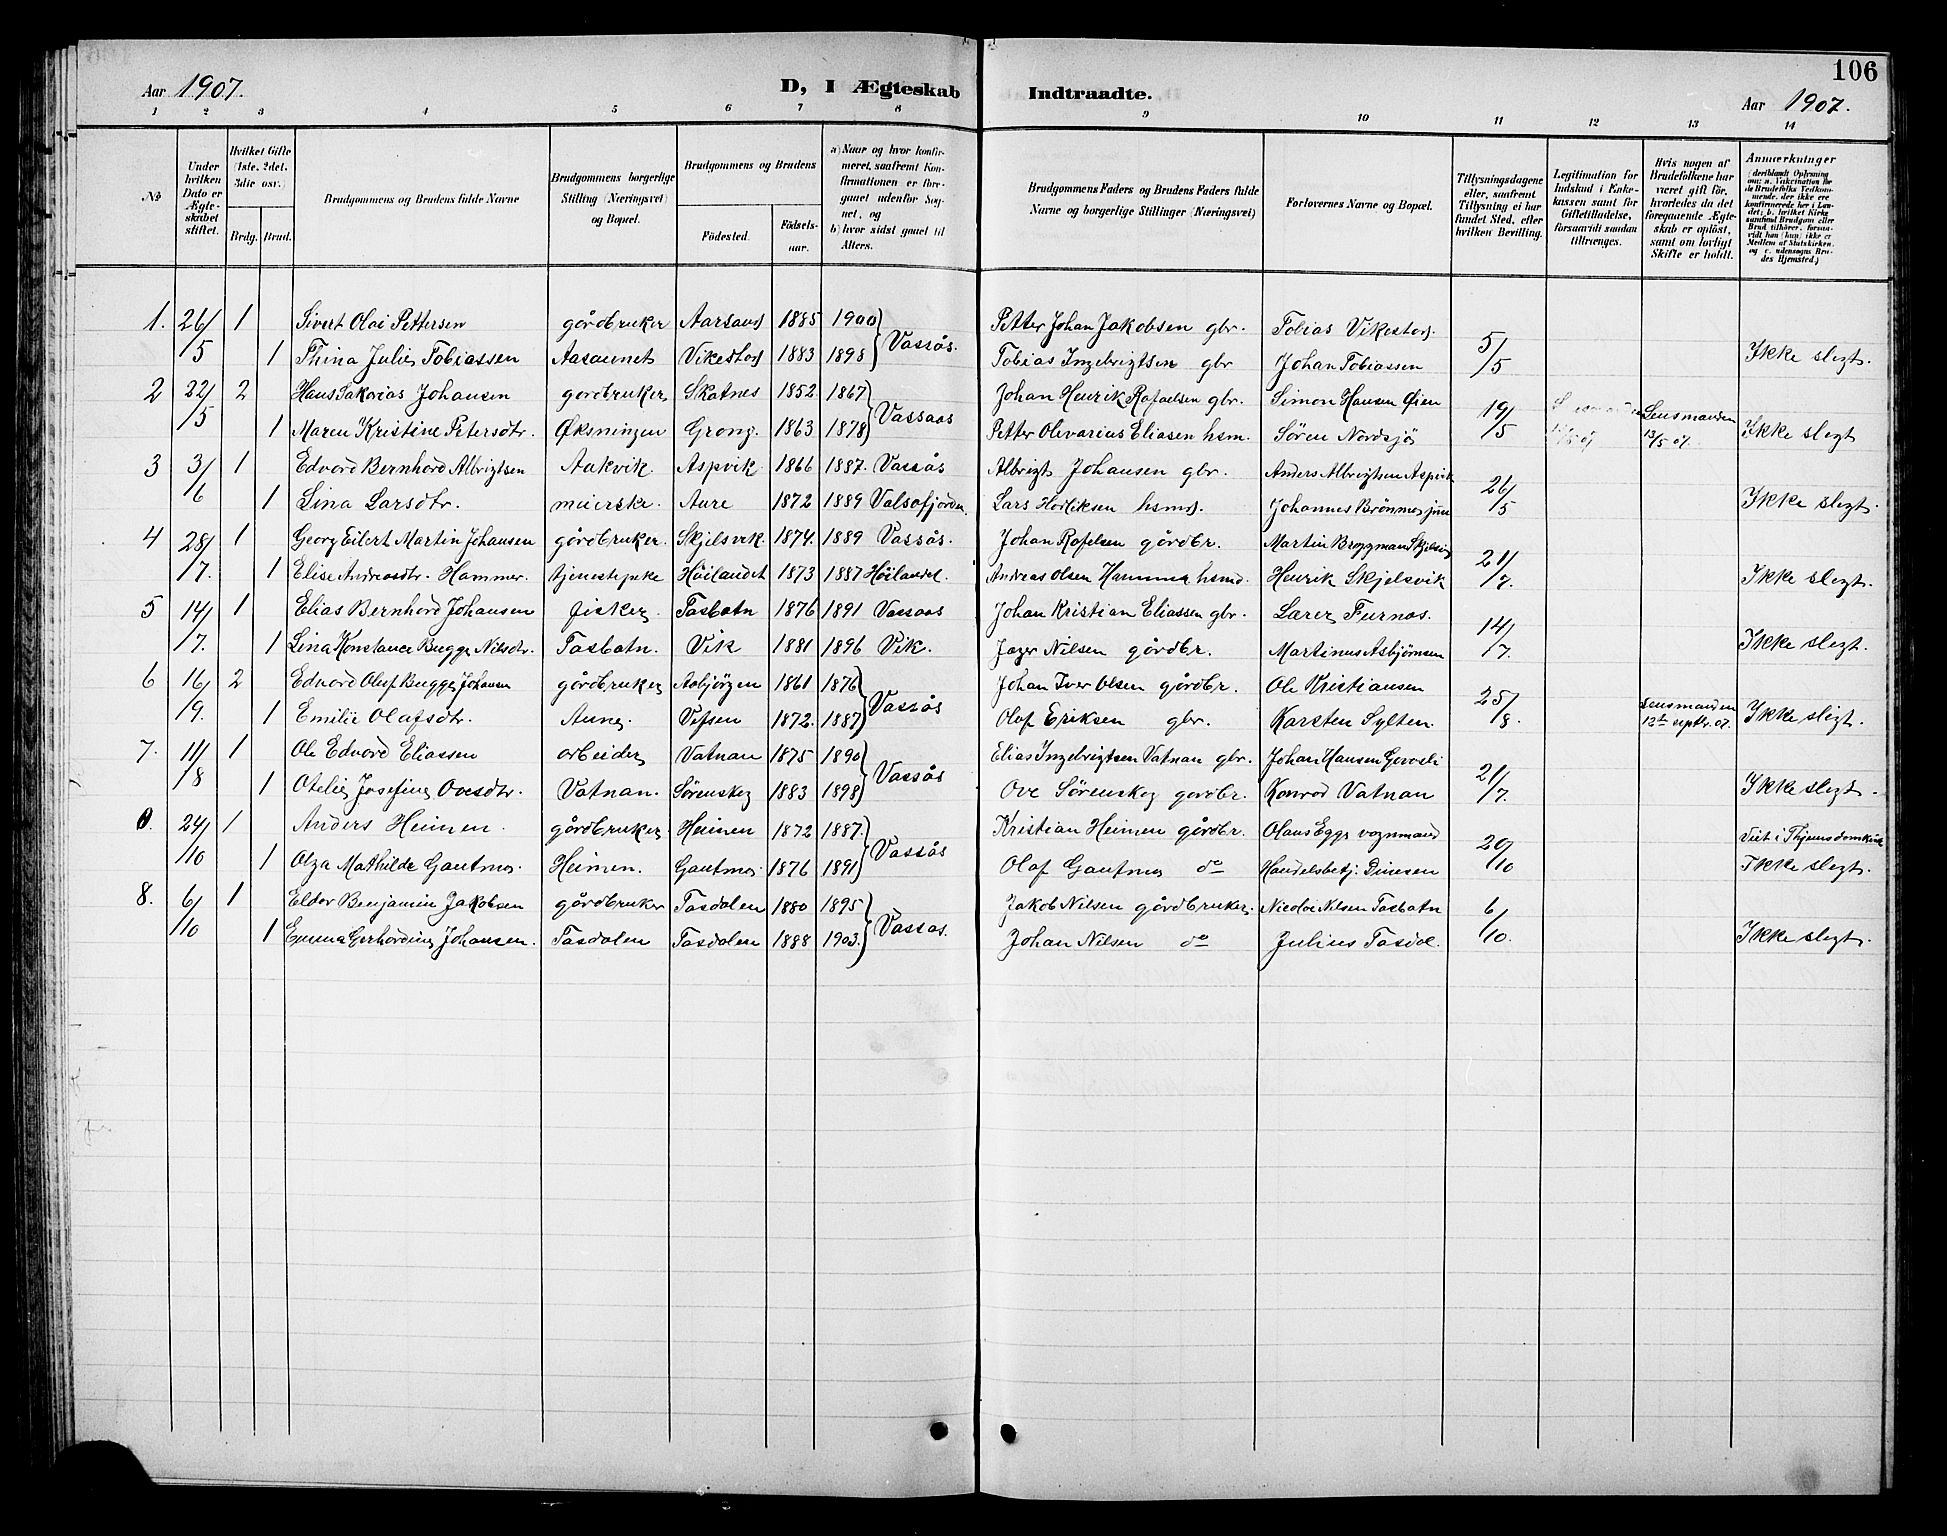 106
Aar 1907.
D, I Ægteskab Indtraadte.
Aar 1907.
1 2 3 4 5 6 7 8 9 10 11 12 13 14
№
Under hvilken Dato er Ægteskabet stiftet.
Hvilket Gifte (1ste, 2det, 3die osv.)
Brdg. Brud.
Brudgommens og Brudens fulde Navne
Brudgommens borgerlige Stilling (Næringsvei) og Bopæl.
Brudgommens og Brudens
Födested.
Födsels-aar.
a) Naar og hvor konfirmeret, saafremt Konfirmationen er foregaaet udenfor Sognet, og
b) hvor sidst gaaet til Alters.
Brudgommens Faders og Brudens Faders fulde Navne og borgerlige Stillinger (Næringsvei)
Forlovernes Navne og Bopæl.
Tillysningsdagene eller, saafremt Tillysning ei har fundet Sted, efter hvilken Bevilling.
Legitimation for Indskud i Enkekassen samt for Giftetilladelse, forsaavidt saadan tiltrænges.
Hvis nogen af Brudefolkene har været gift før, hvorledes da det foregaaende Ægteskab er opløst, samt om lovligt Skifte er holdt.
Anmærkninger (deriblandt Oplysning om: a. Vakcination for de Brudefolks Vedkommende, der ikke ere konfirmerede her i Landet; b. hvilket Kirkesamfund Brudgom eller Brud tilhörer, forsaavidt han (hun) ikke er Medlem af Statskirken. og c. udensogns Brudes Hjemsted.)
1. 26/5 1 Sivert Olai Pettersen gårdbruker 1885 1900 Vassås. Petter Johan Jakobsen gbr. Tobias Vikestad. 5/5
1 Thina Julie Tobiassen Aasaunet Vikestad 1883 1898 Tobias Ingebrigtsen gbr Johan Tobiassen Ikke slegt.
2 22/5 2 Hans Sakarias Johansen gardbruker Skatnes 1852 1867 Vassaas Johan Henrik Rafaelsen gbr. Simon Hansen Øien 19/5 Lensmanden
1 Maren Kristine Petersdtr. Øksningen Grong. 1863 1878 Petter Olevarius Eliasen hsm. Sören Nordsjö 13/5 07. Ikke slegt
3 3/6 1 Edvard Bernhard Albrigtsen Aakvik. Aspvik. 1866 1887. Vassås Albrigt Johansen gbr. Anders Albrigtsen Aspvik 26/5
1 Lina Larsdtr. meierske. Aure 1872 1889 Valsøfjorden. Lars Hodiksen hsmd. Johannes Brönmo jun Ikke slegt.
4 28/7. 1 Georg Eilert Martin Johansen gårdbruker. Skjelsvik 1874. 1889 Vassås. Johan Rafelsen gårdbr. Martin 21/7.
1 Elise Andreasdtr. Hammer. tjenestepike Höilandet 1873 1887 Höilandet. Andreas Olsen Hammer hsmd. Henrik Skjelsvik Ikke slegt.
5 14/7. 1 Elias Bernhard Johansen fisker Tosbotn 1876 1891 Vassaas Johan Kristian Eliassen gbr. Furnas. 14/7.
1 Lina Konstance Bugge Nilsdtr. Tosbotn. Vik 1881 1896 Vik. Nilsen gårdbr. Martinus Asbjørnsen Ikke slegt.
6 16/9. 2 Edvard Oluf Bugge Johansen gårdbruker Asbjörgen 1861 1876 Vassås Johan Iver Olsen gårdbr. Ole Kristiansen 25/8 Lensmanden
1 Emilie Olafsdtr. Aune Vefsen 1872. 1887 Olaf Eriksen gbr. Karsten Sylten 12te septbr. 07. Ikke slegt.
7. 11/8 1 Ole Edvard Eliassen arbeider Vatnan 1875 1890 Vassås Elias Ingebrigtsen Vatnan gbr. Johan Hansen 21/7.
1 Otelie Josefine Ovesdtr. Vatnan. Sørenskog 1883 1898 Ove Sørenskog gardbr. Konrad Vatnan Ikke slegt.
0. 24/10 1 Anders Heimen. gårdbruker Heimen 1872 1887. Vassås Kristian Heimen gårdbr. Olaus Egge vognmand 20/10 Viet i Thjems domkirke
1 Olga Mathilde Gautmo. Heimen. Gautmo. 1876 1891 Olaf Gautmo do Handelsbetj. Dinesen Ikke slegt.
8. 6/10 1 Eldor Benjamin Jakobsen gårdbruker Tosdalen 1880 1895 Vassås. Jakob Nilsen gårdbruker. Nicolai Nilsen Tosbotn 6/10.
1 Emma Gerhardine Johansen. Tosdalen Tosdalen 1888 1903. Johan Nilsen do Julius Tosdal. Ikke slegt.